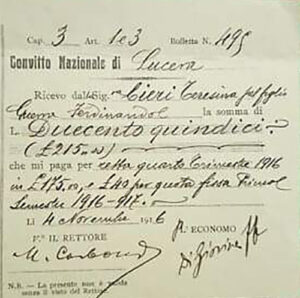 Cap. 3 Art. 1e3 Bolletta N. 495
Convitto Nazionale di Lucera
Ricevo dal Sig. Cieri Teresina pel figlio
Ferdinando la somma di
L. Duecento quindici
(£215.00)
che mi paga per retta quarto trimestre 1916
in £175.00, e £40 per quota fissa
Semestre 1916-917.
Lì 4 Novembre 1916
F.to IL RETTORE
L'ECONOMO
M.
N.B. - La presente non è valida
senza il visto del Rettore